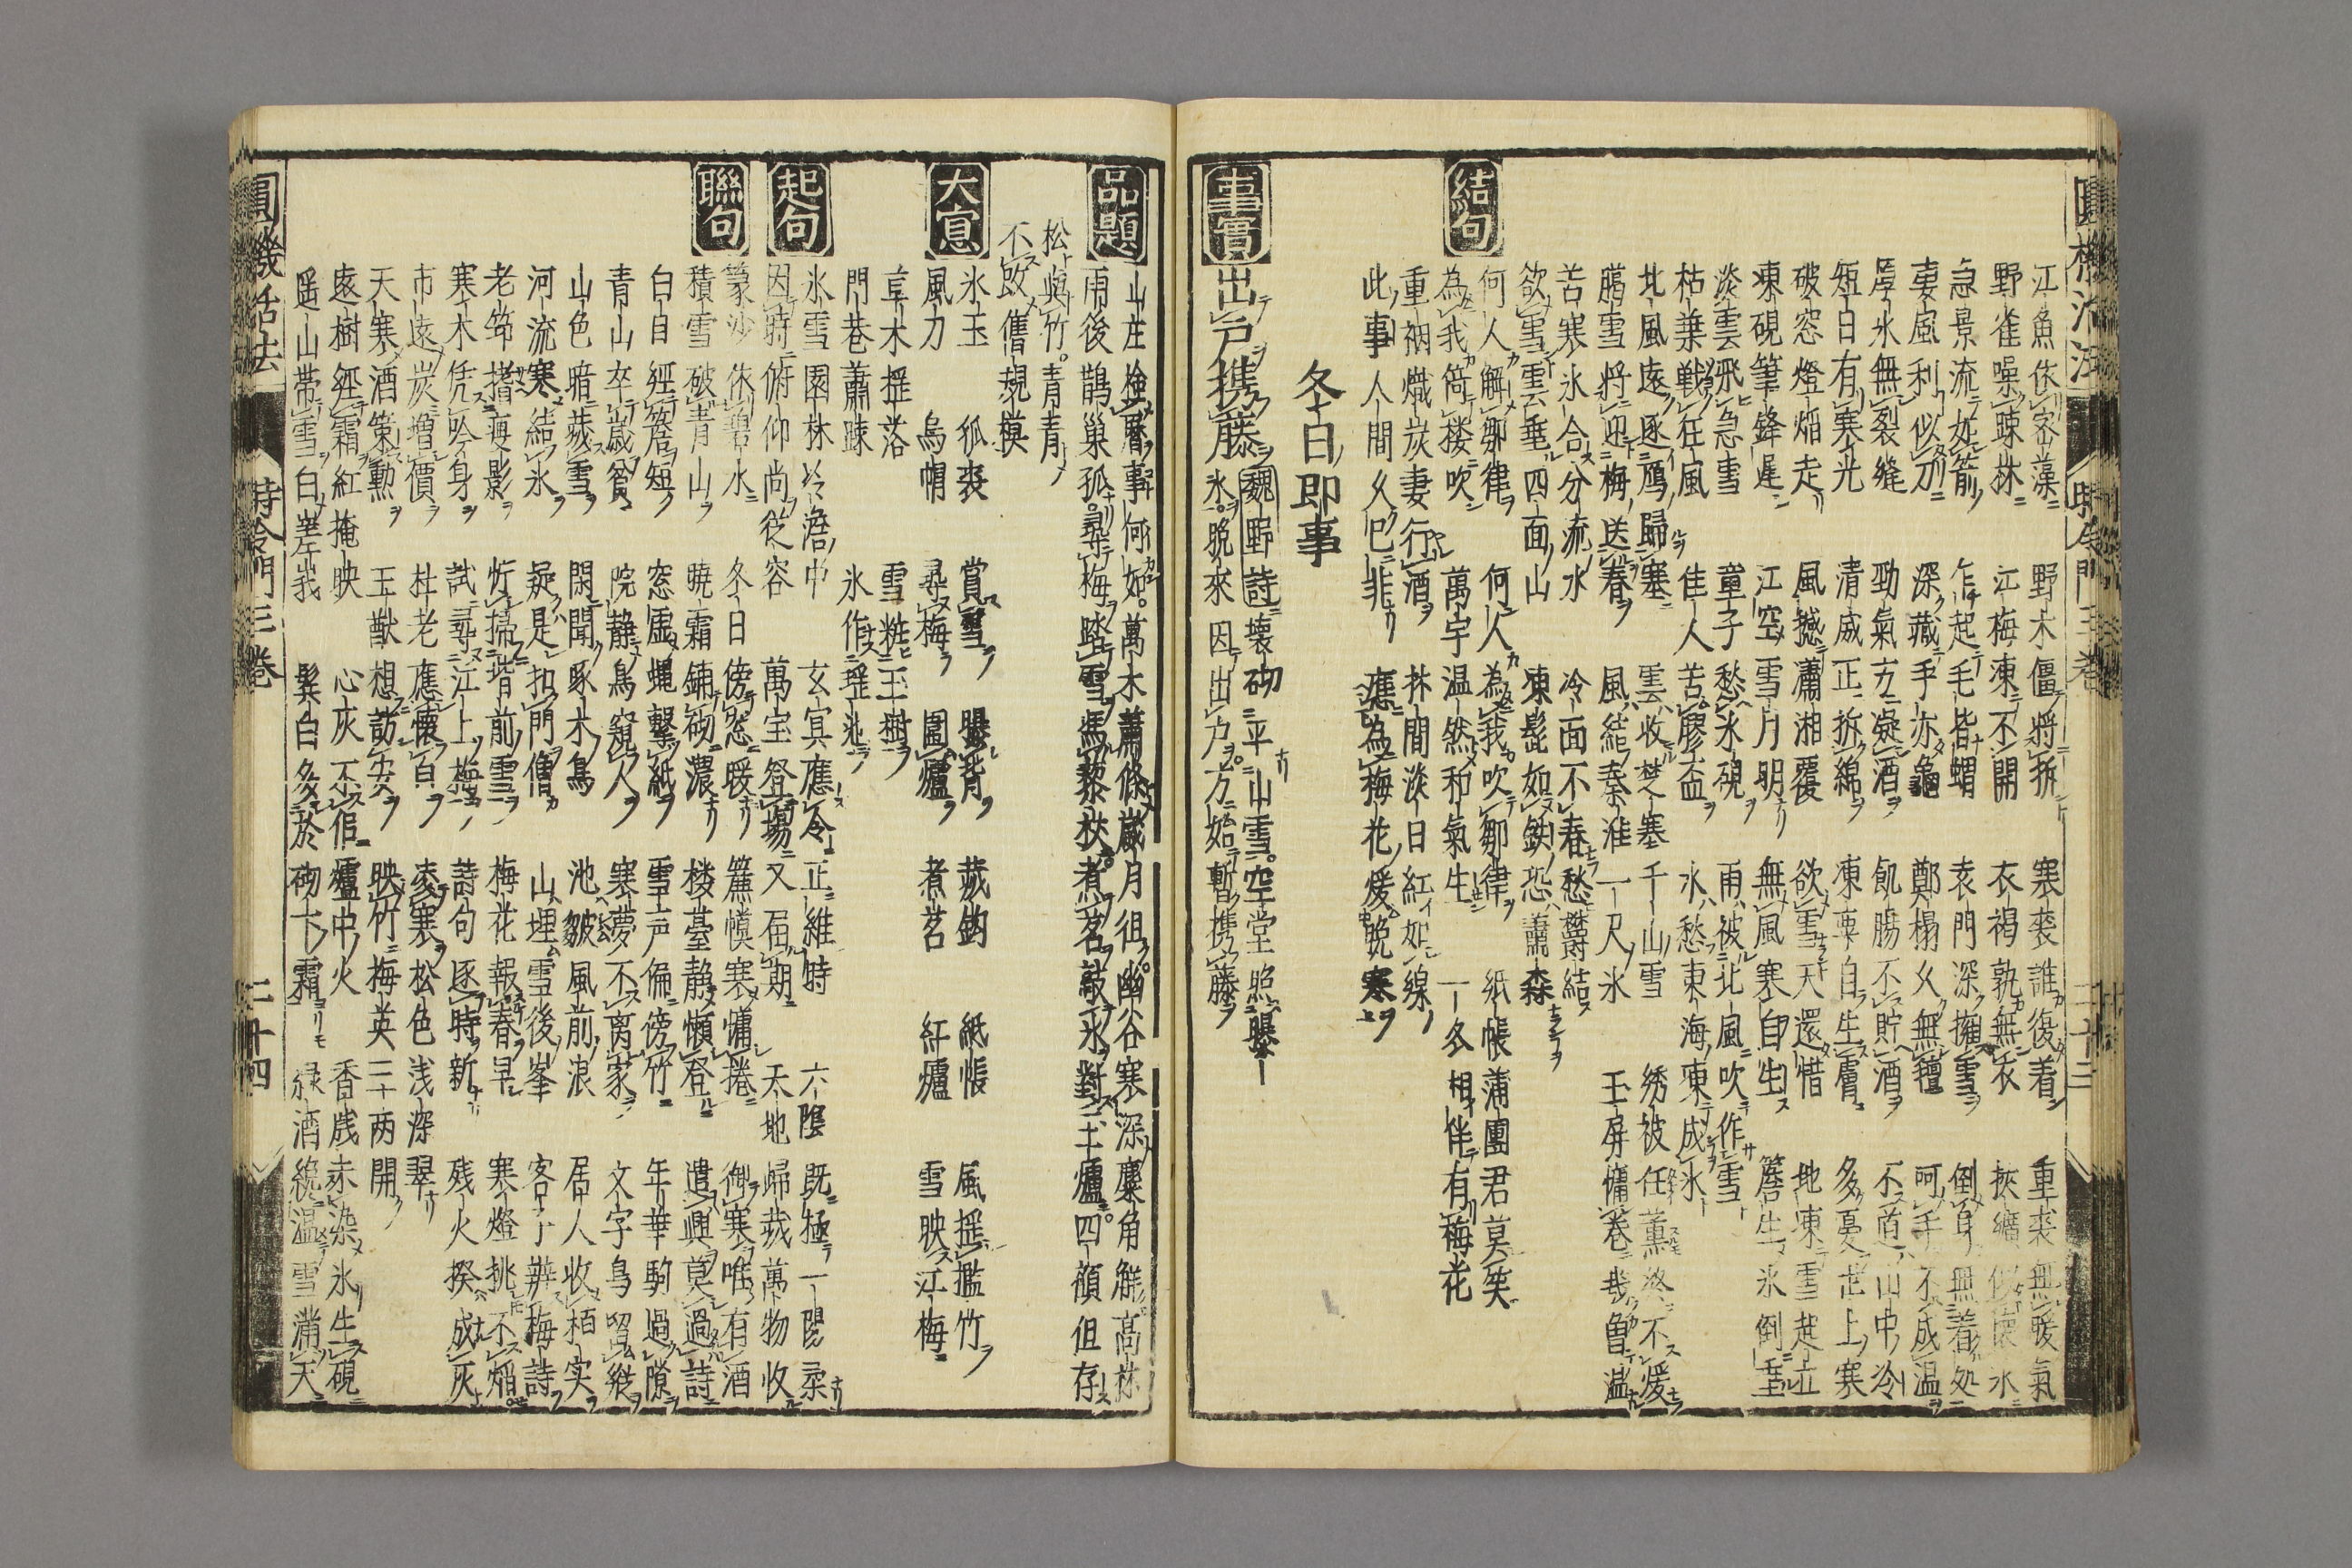 圓機活法 時令門三卷 二十三
江魚依密藻 野木僵將拆 寒裘誰復着 重裘無暖氣
野雀噪踈林 江梅凍不開 衣褐孰無衣 挾纊似懷氷
急景流如箭 乍起毛皆蝟 袁門深擁雪 倒身無着処
凄風利似刀 深藏手亦龜 鄭榻久無氊 呵手不成温
厚氷無裂縫 勁氣方凝酒 飢腸不貯酒 不道山中冷
短日有寒光 清威正拆綿 凍栗自生膚 多憂世上寒
破窓燈焔走 風撼瀟湘覆 欲雪天還惜 地凍雪起立
凍硯筆鋒遲 江空雪月明 無風寒自生 簷生氷倒垂
淡雲飛急雪 童子愁氷硯 雨被北風吹作雪
枯葉戦狂風 佳人苦膠盃 水愁東海凍成氷
北風遠逐鴈歸塞 雲收楚塞千山雪 綉被任薫終不煖
臈雪將迎梅送春 風結秦淮一尺氷 玉屏慵巻幾曽温
苦寒氷合分流水 冷面不春愁欝結
欲雪雲垂四面山 凍髭如鉄恐蕭森
結句
何人解鄒律 何人為我吹鄒律 紙帳蒲團君莫笑
為我倚楼吹 萬宇温然和氣生 一冬相伴有梅花
重裀熾炭妻行酒 林間淡日紅如線
此事人間久已非 應為梅花煖晩寒
冬日即事
事實
出戸携藤 魏野詩 壊砌平山雪空堂照曝
氷晩來因出戸方始暫携藤
品題
山庄檢曆事何如萬木蕭條歳月徂幽谷寒深麋角觧高林
雨後鵲巢孤尋梅踏雪馮藜杖煮茗敲氷對土爐四顔但存
松與竹青青
不改舊規模
大意
氷玉 狐裘 賞雪 曝背 莪鈎 紙帳 風揺檻竹
風力 烏帽 尋梅 圍爐 煮茗 紅爐 雪映江梅
草木揺落 雪粧玉樹
門巷蕭踈 氷作瑶池
起句
氷雪園林冷澹中 玄冥應令正維時 六隂既極一陽柔
因時俯仰尚從容 萬宝登場又届期 天地歸莪萬物收
聯句
篆沙依碧水 冬日傍窓暖 簾幙寒慵捲 御寒唯有酒
積雪破青山 暁霜鋪砌濃 楼臺静懶登 遣興莫過詩
白日經簷短 窓虚蝿撃紙 雪声偏傍竹 年華駒過隙
青山卒歳貧 院静鳥窺人 寒夢不离家 文字鳥留縱
山色暗莪雪 閑聞啄木鳥 池皺風前浪 居人收栢実
河流寒結氷 疑是扣門僧 山埋雪後峯 客子辨梅詩
老筇搘痩影 忻掃堦前雪 梅花報春早 寒燈挑不焔
寒木凭吟身 試尋江上梅 詩句逐時新 残火揆成灰
市遠炭増價 杜老應懐白 凌寒松色浅深翠
天寒酒策勲 王猷想訪安 映竹梅英三十両開
遠樹經霜紅掩映 心灰不佀爐中火 香残未染氷生硯
遥山帯雪白嵳峩 鬂白多於砌下霜 緑酒纔温雪滿天
圓機活法 時令門三卷 二十四